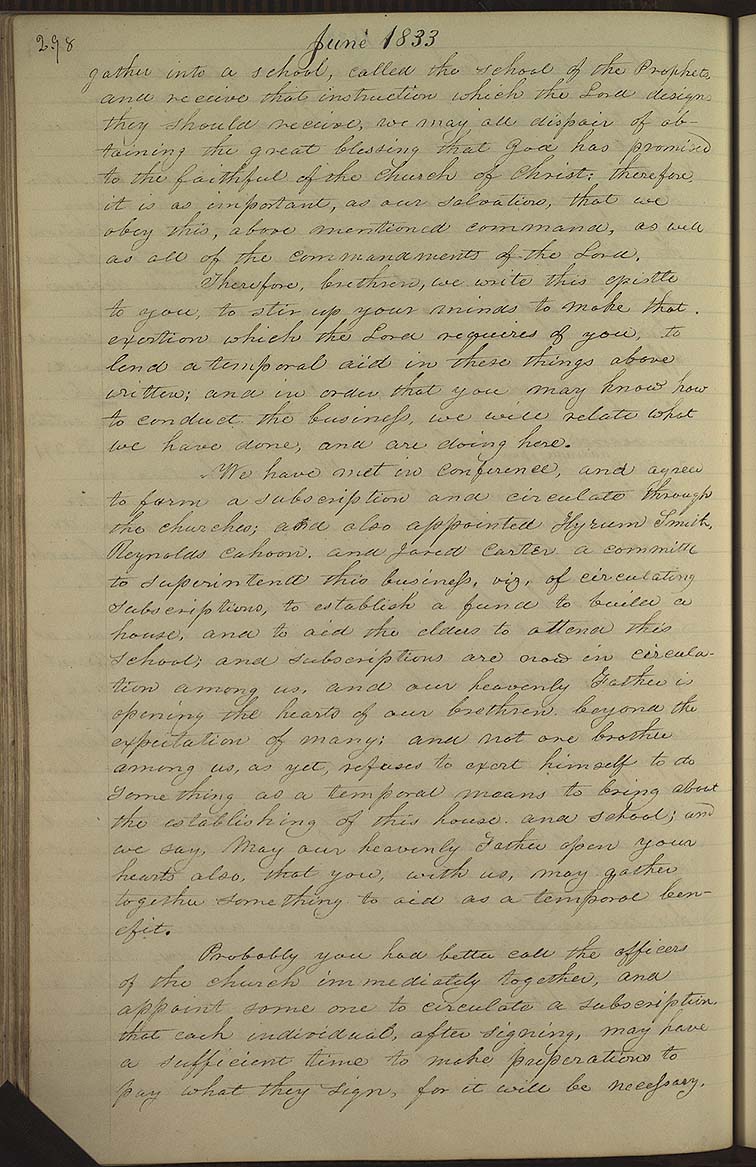 298
June 1833
gather into a school, called the school of the Prophets,
and receive that instruction which the Lord designs
they should receive, we may all dispair of ob-
taining the great blessing that God has promised
to the faithful of the Church of Christ; therefore,
it is as important, as our salvation, that we
obey this, above mentioned command, as well
as all of the commandments of the Lord.
Therefore, brethren, we write this epistle
to you, to stir up your minds to make that
exertion which the Lord requires of you, to
lend a temporal aid in these things above
written; and in order that you may know how
to conduct the business, we will relate what
we have done, and are doing here.
We have met in conference, and agreed
to form a subscription and circulate through
the churches; and also appointed Hyrum Smith,
Reynolds Cahoon, and Jared Carter a committe
to superintend this business, viz, of circulating
subscriptions, to establish a fund to build a
house, and to aid the elders to attend this
school; and subscriptions are now in circula-
tion among us, and our heavenly Father is
opening the hearts of our brethren beyond the
expectation of many; and not one brother
among us, as yet, refuses to exert himself to do
something as a temporal means to bring about
the establishing of this house and school; and
we say, May our heavenly Father open your
hearts also, that you, with us, may gather
together something to aid as a temporal ben-
efit.
Probably you had better call the officers
of the church immediately together, and
appoint some one to circulate a subscription,
that each individual, after signing, may have
a sufficient time to make preperations to
pay what they sign, for it will be necessary,